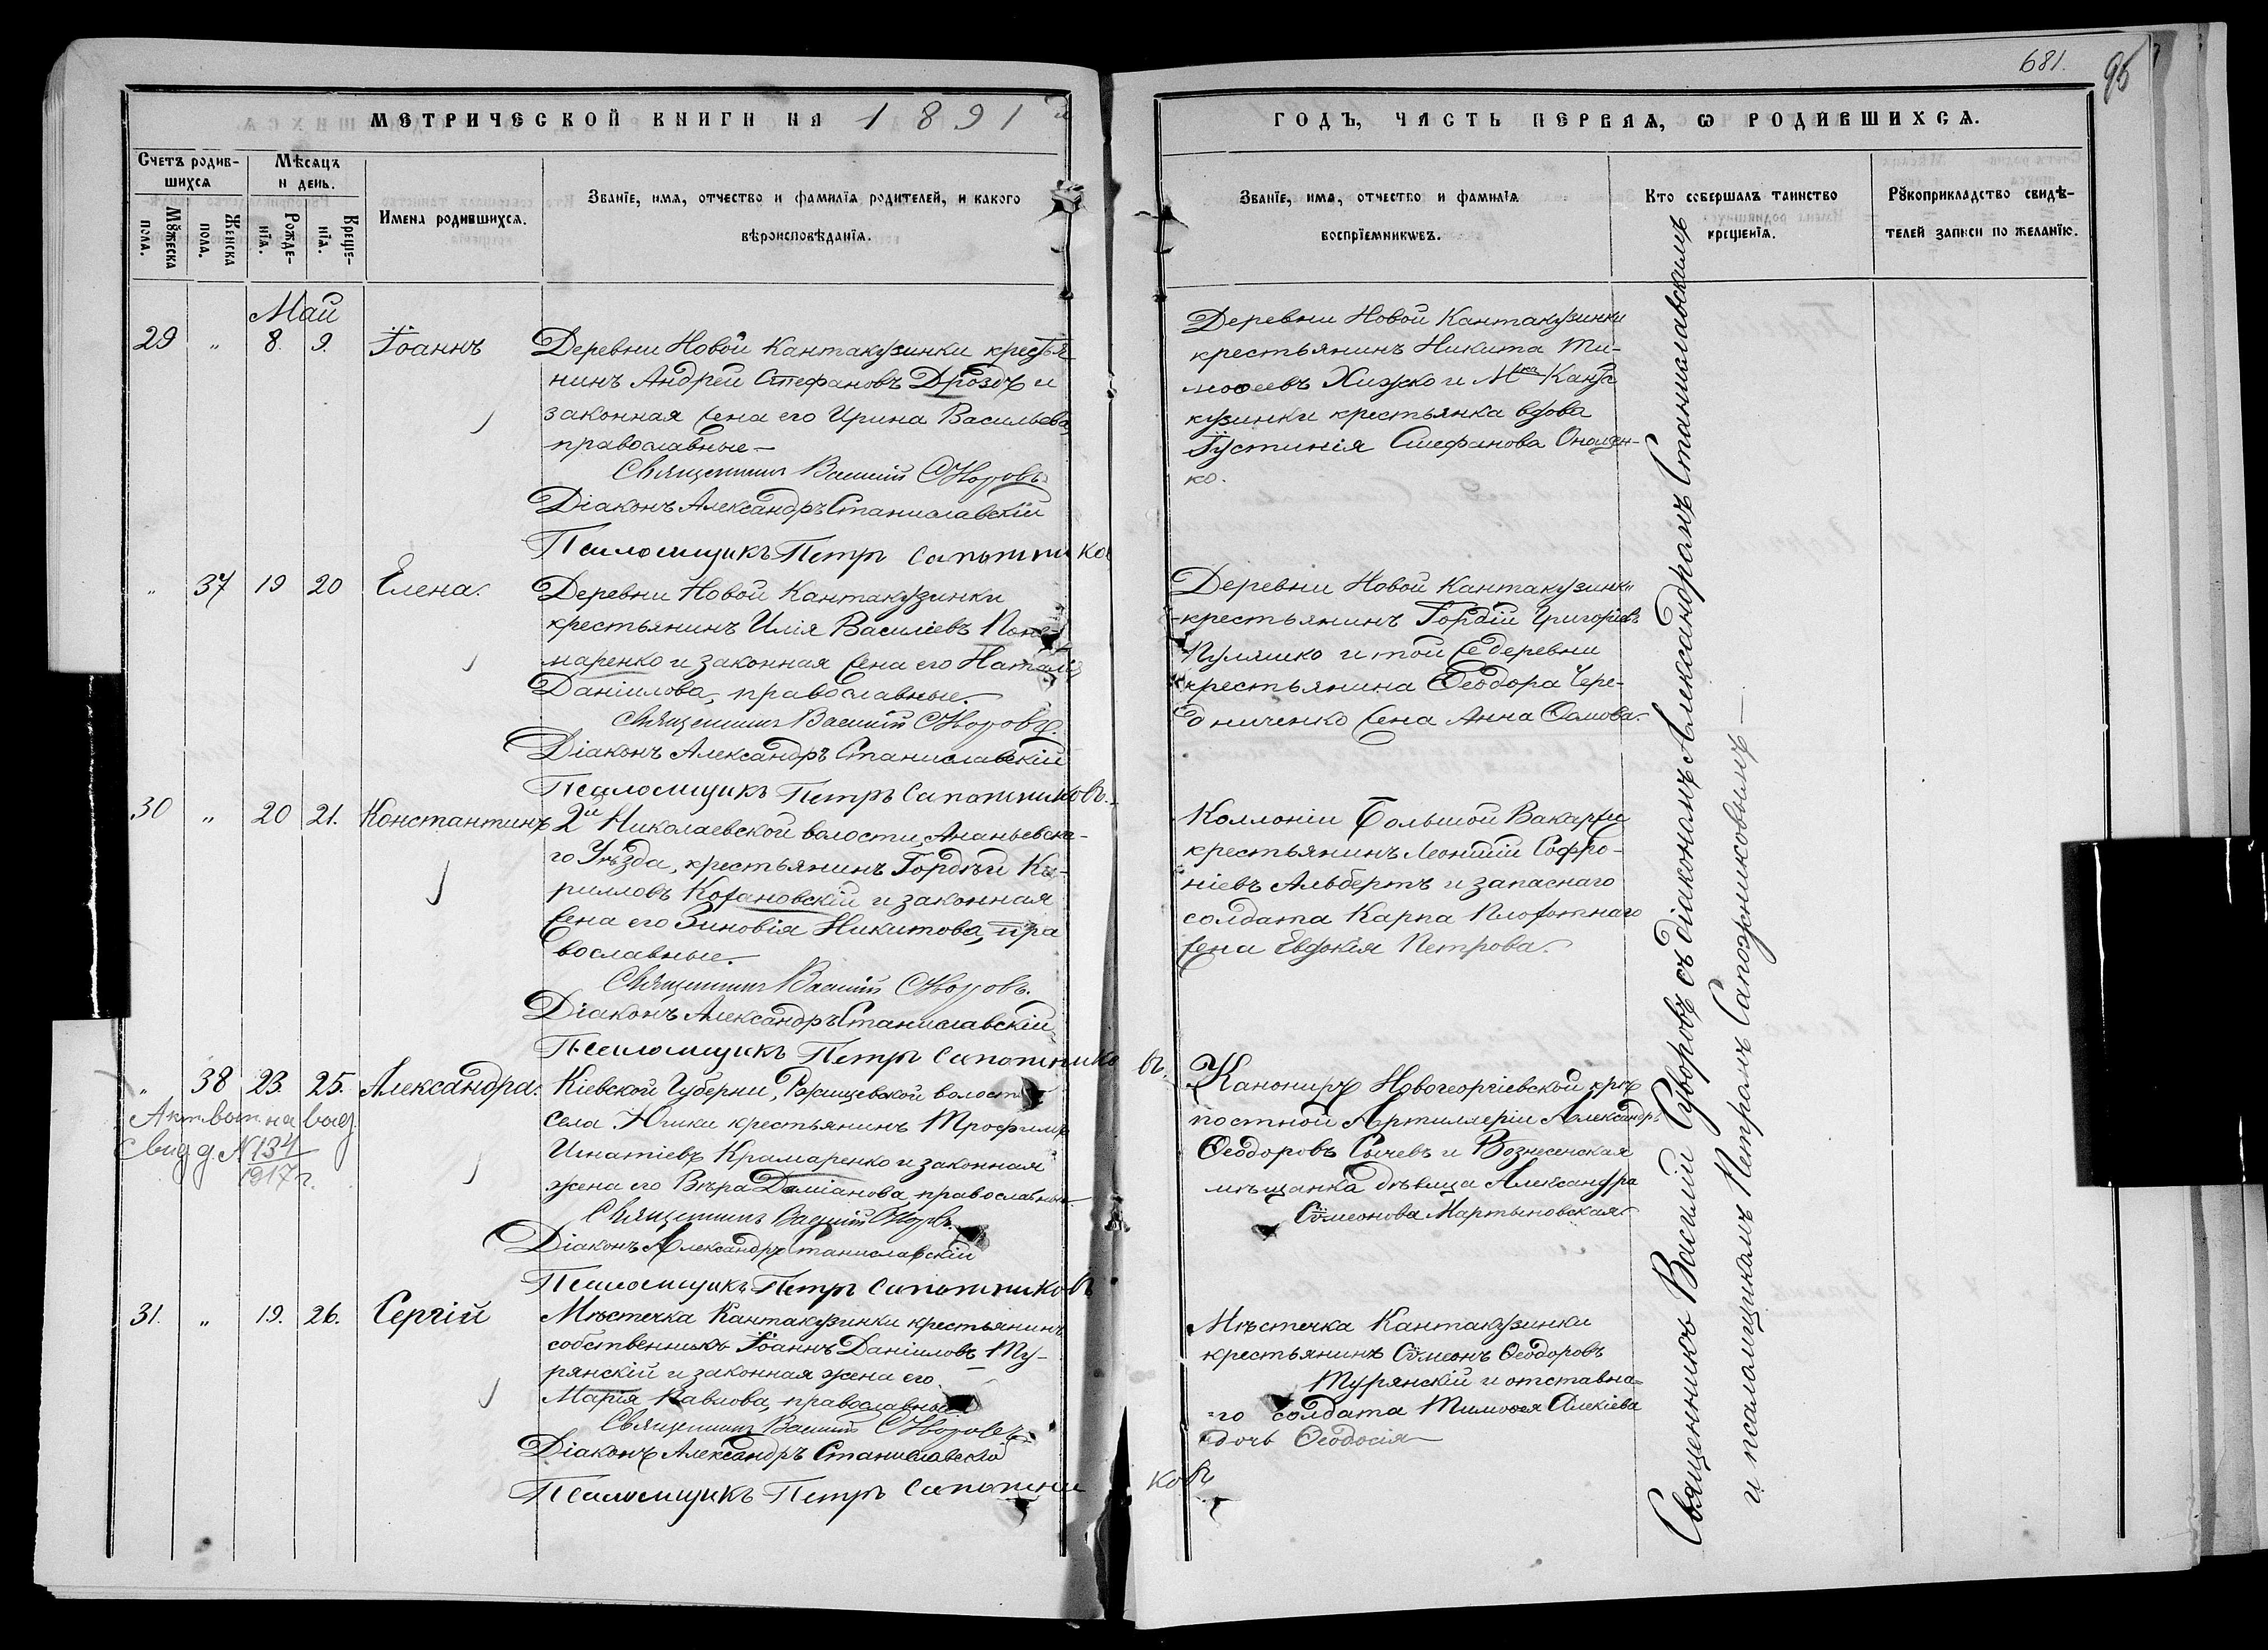 681.
95
МЕТРИЧЕСКОЙ КНИГИ НА 1891й
ГОДЪ, ЧАСТЬ ПЕРВАЯ, Ѡ РОДИВШИХСЯ.
Счетъ родив-
шихся
Мѣсяцъ
и день.
Мꙋжеска
пола.
Женска
пола.
Рожде-
нїя.
Креще-
нїя.
Имена родившихся.
Званїе, имя, отчество и фамилїя родителей, и какого
вѣроисповѣданїя.
Званїе, имя, отчество и фамилїя
воспрїемниковъ.
Кто совершалъ таинство
крещенїя.
Рꙋкоприкладство свидѣ-
телей записи по желанїю.
Май
29 „ 8. 9. Іоаннъ
Деревни Новой Кантакузинки крестья-
нинъ Андрей Стефановъ Дроздъ и
законная жена его Ирина Васильева,
православные —
Священникъ Василій Суворовъ.
Діаконъ Александръ Станиславскій
Псаломщикъ Петръ Сапожников
Деревни Новой Кантакузинки
крестьянинъ Никита Ти-
моѳеевъ Хижко и Мка Канта
кузинки крестьянка вдова
Іустинія Стефанова Онищен-
ко.
„ 37 19 20 Елена.
Деревни Новой Кантакузинки
крестьянинъ Илія Василіевъ Поно-
маренко и законная жена его Наталія
Даніилова, православные.
Священникъ Василій Суворовъ.
Діаконъ Александръ Станиславскій
Псаломщикъ Петръ Сапожниковъ.
Деревни Новой Кантакузинки
крестьянинъ Гордій Григоріевъ
Пуляшко и той же деревни
крестьянина Ѳеодора Чере-
дниченко жена Анна Ѳомова.
30 „ 20 21. Константинъ
2й Николаевской волости, Ананьевска-
го Уѣзда, крестьянинъ Гордѣй Ки-
рилловъ Кожановскій и законная
жена его Зиновія Никитова, пра
вославные.
Священникъ Василій Суворовъ.
Діаконъ Александръ Станиславскій
Псаломщикъ Петръ Сапожниковъ.
Коллоніи Большой Вакаржи
крестьянинъ Леонтій Софро-
ніевъ Альбертъ и запаснаго
солдата Карпа Плохотнаго
жена Евдокія Петрова.
„ 38 23. 25. Александра.
Акт. вып. на выд.
Свид. д. N 134
1917 г.
Кіевской Губерни, Ржищевской волости
села Юшки крестьянинъ Трофимъ
Игнатіевъ Крамаренко и законная
жена его Вѣра Даміанова, православные
Священникъ Василій Суворовъ.
Діаконъ Александръ Станиславскій
Псаломщикъ Петръ Сапожниковъ
Канониръ Новогеоргіевской крѣ
постной Артиллеріи Александръ
Ѳеодоровъ Сычевъ и Вознесенская
мѣщанка дѣвица Александра
Сѵмеонова Мартыновская.
31. „ 19. 26. Сергій
Мѣстечка Кантакузинки крестьянинъ
собственникъ Іоаннъ Даніиловъ Ту-
рянскій и законная жена его
Марія Павлова, православные
Священникъ Василій Суворовъ.
Діаконъ Александръ Станиславскій
Псаломщикъ Петръ Сапожниковъ
Мѣстечка Кантакузинки
крестьянинъ Сѵмеонъ Ѳеодоровъ
Турянскій и отставна-
го солдата Тимоѳея Алекіева
дочь Ѳеодосія
Священникъ Василій Суворовъ съ діакономъ Александромъ Станиславскимъ
и псаломщикомъ Петромъ Сапожниковымъ —